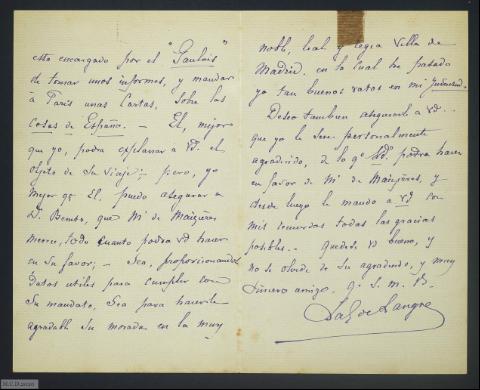 esta encargado por el "Gaulois"
de tomar unos informes, y mandar
à Paris unas Cartas, sobre las
cosas de España. — El, mejor
que yo, podra explanar a Vd. el
objeto de su viaje; — pero, yo
mejor qe El, puedo asegurar a
D. Benito, que Mr de Maizières
merece, todo cuanto podra Vd hacer
en su favor; — Sea, proporcionando
datos utiles para cumplir con
su mandato, Sea para hacerle
agradable su morada en la muy
noble, leal y regia Villa de
Madrid, en la cual he pasado
yo tan buenos ratos en mi juventud.
Deseo tambien asegurarle a Vd..
que yo le sere personalmente
agradecido, de lo qe Vd. podra hacer
en favor de Mr de Maizières, y
desde luego le mando a Vd con
mis recuerdos todas las gracias
posibles. — Quedese Vd bueno, y
no se olvide de su agradecido, y muy
sincero amigo. q. S. m. B.
M.C.D.